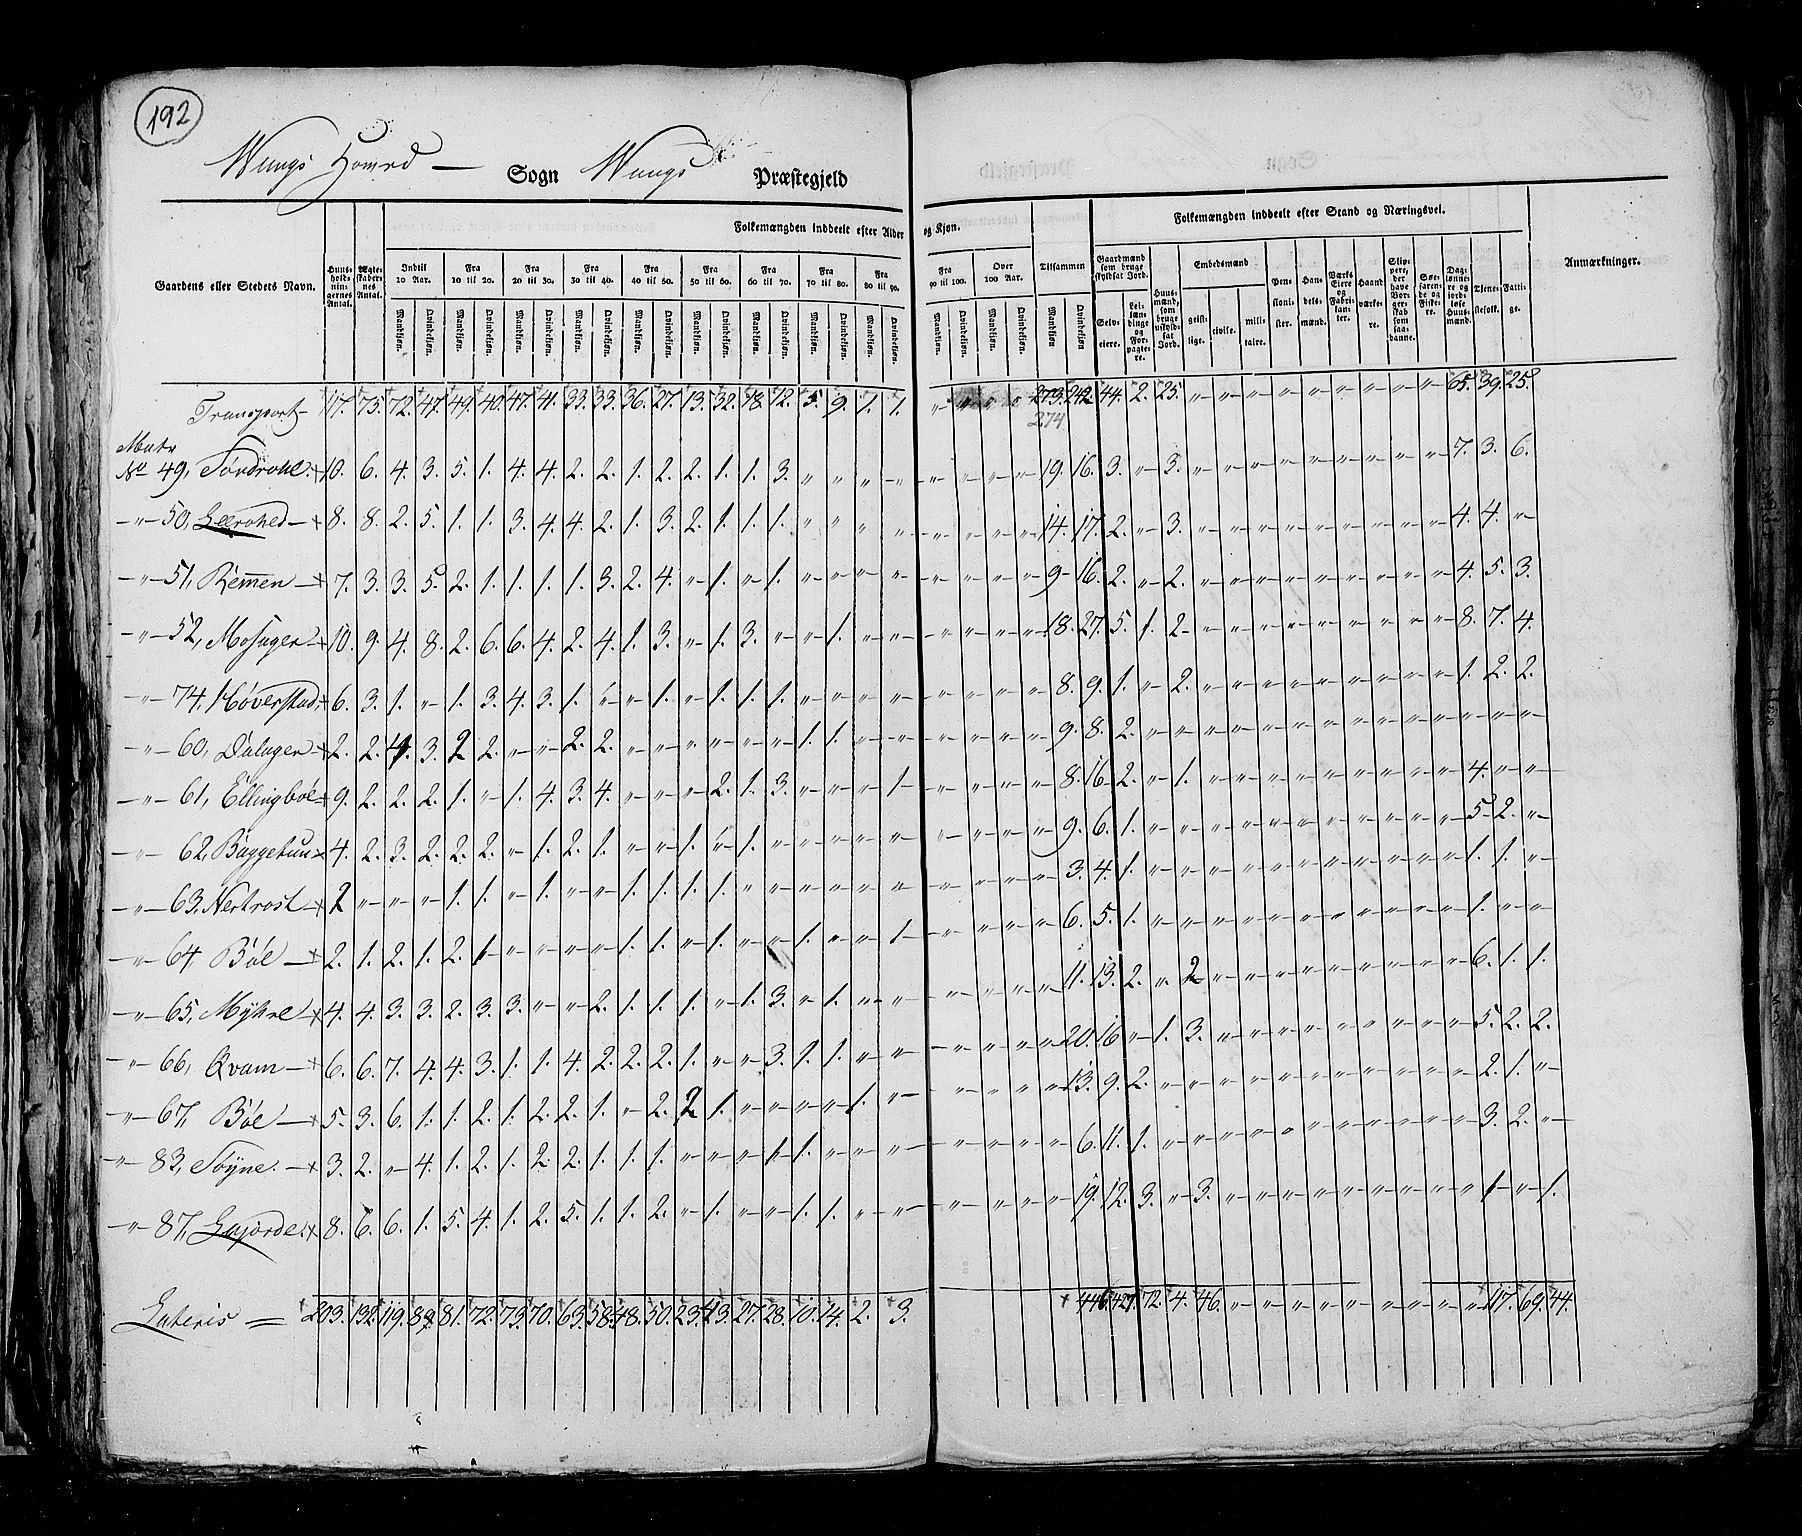 192
Wangs Hoved — Sogn Wangs Præstegjeld
Folkemængden inddeelt efter Alder og Kjøn. Folkemængden inddeelt efter Stand og Næringsvei.
Gaardens eller Stedets Navn. Huus-holdningernes Antal. Ægteskabernes Antal. Indtil 10 Aar. Fra 10 til 20. Fra 20 til 30. Fra 30 til 40. Fra 40 til 50. Fra 50 til 60. Fra 60 til 70. Fra 70 til 80. Fra 80 til 90. Fra 90 til 100. Over 100 Aar. Tilsammen Gaardmænd som bruge skyldsat Jord. Huusmænd, som bruge uskyldsat Jord. Embedsmænd Pensionister. Handelsmænd. Værks Eiere og Fabrikanter. Haandværkere. Skippere, der have Borgerskab som saadanne. Søefarende og Fiskere. Daglønnere og jordløse Huusmænd. Tjenestefolk. Fattige. Anmærkninger.
Mandkjøn. Qvindekjøn. Selveiere. Leilændinge og Forpagtere. geistlige. civile. militaire.
Transport 117. 75. 72. 47. 49. 40. 47. 41. 33. 33. 36. 27. 13. 32. 18. 12. 5. 9. 1. 1. „ „ „ „ 273. 242. 44. 2. 25. „ „ „ „ „ „ „ „ „ 65. 39. 25.
274
Matr
No 49, 10. 6. 4. 3. 5. 1. 4. 4. 2. 2. 1. 2. 2. 1. 1. 3. „ „ „ „ „ „ „ „ 19. 16. 3. „ 3. „ „ „ „ „ „ „ „ „ 7. 3. 6.
„ 50, Leerohed 8. 8. 2. 5. 1. 1. 3. 4. 4. 2. 1. 3. 2. 1. 1. 1. „ „ „ „ „ „ „ „ 14. 17. 2. „ 3. „ „ „ „ „ „ „ „ „ 4. 4. „
„ 51, Remen 7. 3. 3. 5. 2. 1. 1. 1. 1. 3. 2. 4. „ 1. „ 1. „ „ „ „ „ „ „ „ 9 16. 2. „ 2. „ „ „ „ „ „ „ „ „ 4. 5. 3.
„ 52, Mosager 10. 9. 4. 8. 2. 6. 6. 4. 2. 4. 1. 3. „ 1. 3. „ „ 1. „ „ „ „ „ „ 18. 27. 5. 1. 2 „ „ „ „ „ „ „ „ „ 8. 7. 4.
„ 74. Høverstad 6. 3. 1. „ 1. 3. 4. 3. 1. „ „ 1. „ 1. 1. 1. „ „ „ „ „ „ „ „ 8. 9. 1. „ 2. „ „ „ „ „ „ „ „ „ 1. 2. 2.
„ 60, Dalager 2. 2. 4. 3. 2 2. „ „ 2. 2. „ „ „ „ „ „ 1. 1. „ „ „ „ „ „ 9. 8. 2. „ „ „ „ „ „ „ „ „ „ „ „ „ „
„ 61, Ellingbøe 9. 2. 2. 2. 1. „ 1. 4. 3. 4. „ „ „ 2. 1. 3. „ „ „ 1 „ „ „ „ 8. 16 2. „ 1. „ „ „ „ „ „ „ „ „ 4. „ „
„ 62, Baggetun 4. 2. 3. 2. 2. 2. „ 1. 2. 1. „ „ 1. „ 1. „ „ „ „ „ „ „ „ „ 9. 6. 1. „ „ „ „ „ „ „ „ „ „ „ 5. 2. „
„ 63, Nertrost 2 „ „ „ 1. 1. „ 1. „ „ 1. 1. 1. 1. „ „ „ „ „ „ „ „ „ „ 3. 4. 1. „ „ „ „ „ „ „ „ „ „ „ 1. 1. „
„ 64, Bøe 2. 1. 2. 1. 2. 1 „ „ „ „ 1. 1. „ 1. „ „ 1. „ „ 1 „ „ „ „ 6. 5. 1. „ „ „ „ „ „ „ „ „ „ „ 1. „ „
„ 65, Myhre 4. 4. 3. 3. 2. 3. 3. „ „ 2. 1. 1. 1. „ 1. 3. „ 1. „ „ „ „ „ „ 11. 13. 2. „ 2 „ „ „ „ „ „ „ „ „ 6. 1. 1.
„ 66, Qvam 6. 6. 7. 4. 4. 3. 1. 1. 4. 2. 2. 2. 1. „ „ 3. 1. 1. „ „ „ „ „ „ 20. 16 „ 1. 3. „ „ „ „ „ „ „ „ „ 5. 2. 2.
„ 67, Bøe 5. 3. 6. 1. 1. 2. 1. 2. 2. 1. „ 2. 2 1. „ „ „ „ 1. „ „ „ „ „ 13. 9. 2. „ „ „ „ „ „ „ „ „ „ „ 2. 1. „
„ 83, Tøyne. 3. 2. „ 4. 1. 2. 1. 2. 2. 1. 1. 1. „ „ „ 1. 1. „ „ „ „ „ „ „ 6. 11. 1. „ „ „ „ „ „ „ „ „ „ „ 3. 2. „
„ 87, 8. 6. 6. 1. 5. 4. 1. 2. 5. 1. 1. 2. „ 1. „ „ 1. 1. „ „ „ „ „ „ 19. 12. 3. „ 3. „ „ „ „ „ „ „ „ „ 1 „ 1.
Lateris 203. 132. 119. 89. 81. 72. 73. 70. 63. 58. 48. 50. 23. 43. 27. 28. 10. 14. 2. 3. 446. 427. 72. 4. 46. „ „ „ „ „ „ „ „ „ 117. 69. 44.